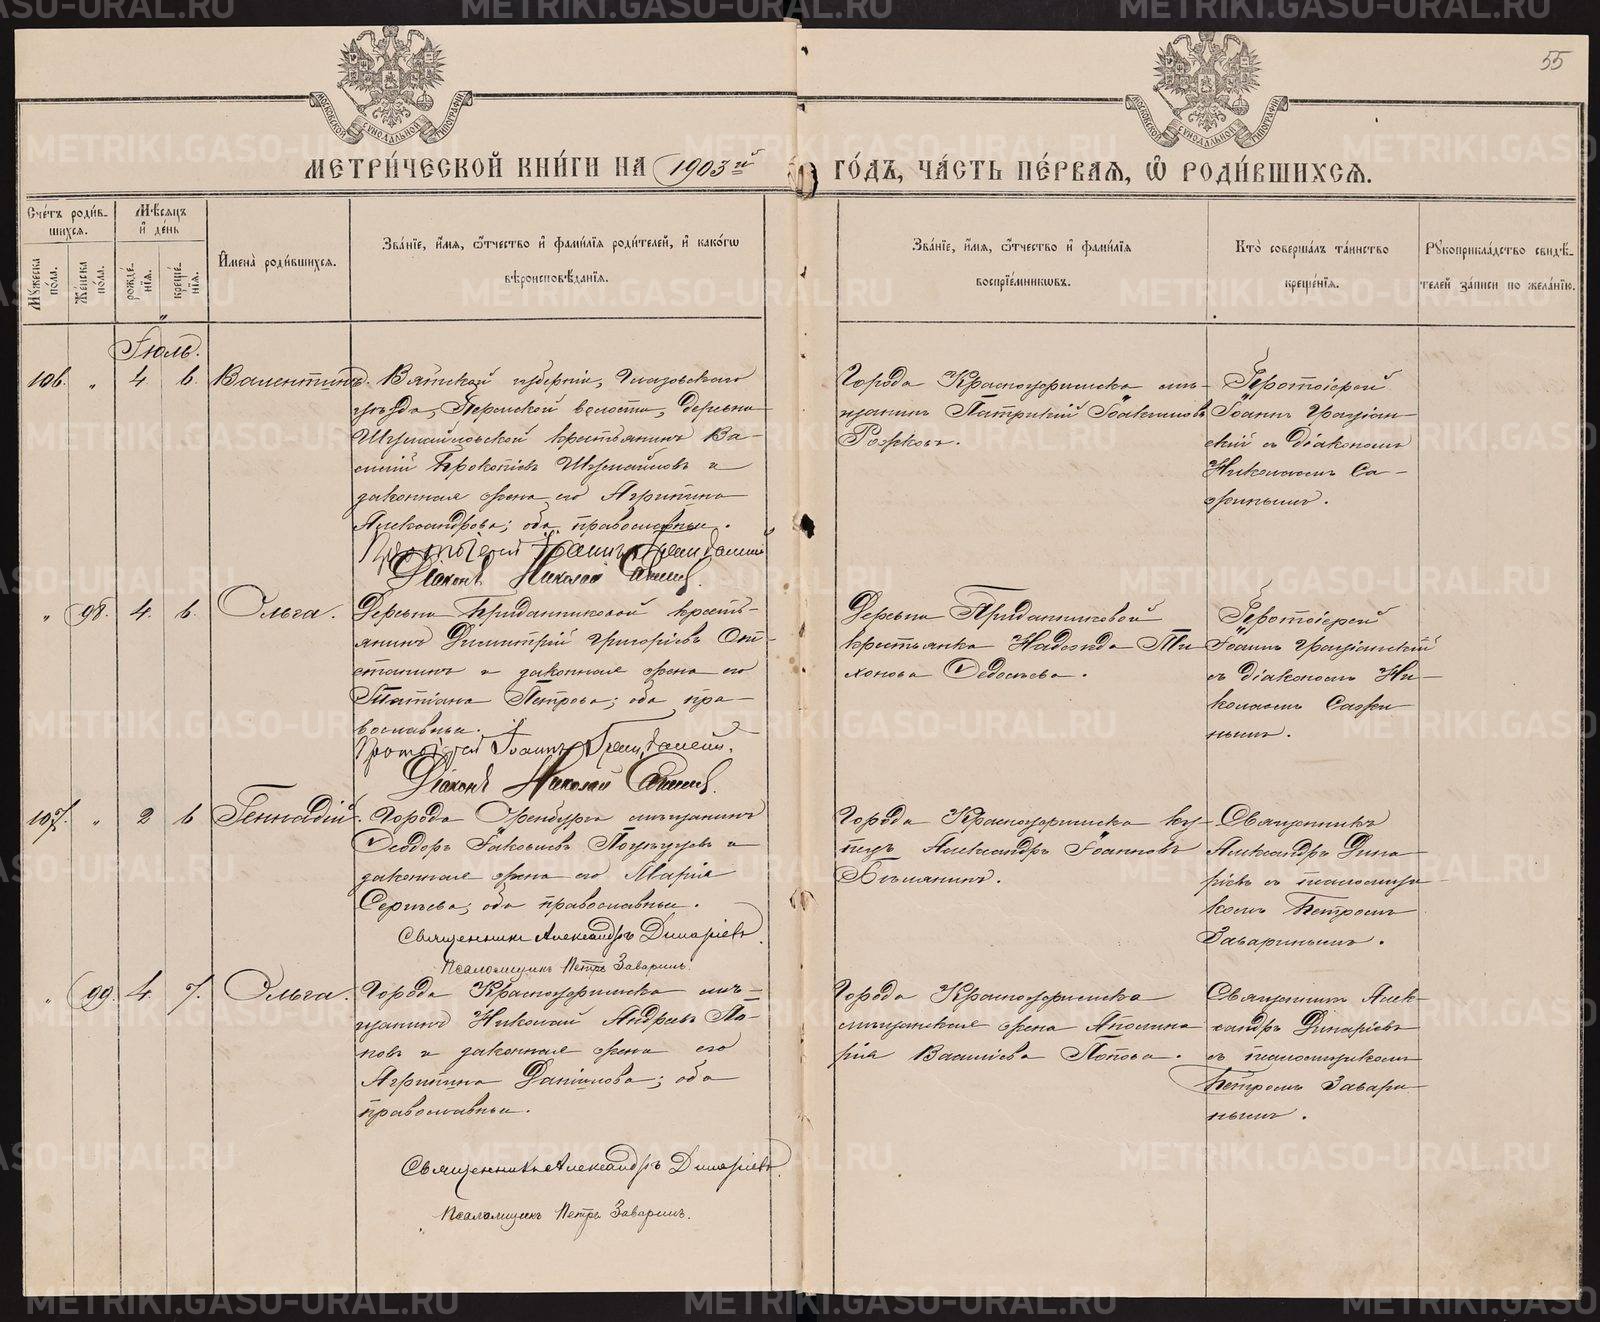 55
МОСКОВСКОЙ СѴНОДАЛЬНОЙ ТИПОГРАФІИ
МОСКОВСКОЙ СѴНОДАЛЬНОЙ ТИПОГРАФІИ
МЕТРИ́ЧЕСКОЙ КНИ́ГИ НА 1903й
ГО́ДЪ, ЧА́СТЬ ПЕ́РВАѦ, Ѽ РОДИ́ВШИХСѦ.
Сче́тъ роди́в-
шихся.
Мꙋ́жеска по́ла.
Же́нска по́ла.
Мѣ́сяцъ
и҆ де́нь
рожде́-
нїѧ.
креще́-
нїѧ.
И҆мена̀ роди́вшихся.
Зва́нїе, и҆́мя, ѻ҆́тчество и҆ фами́лїя роди́телей, и҆ како́гѡ
вѣроисповѣ́данїя.
Зва́нїе, и҆́мя, ѻ҆́тчество и҆ фами́лїя
воспрїе́мникѡвъ.
Кто̀ соверша́лъ та́инство
креще́нїя.
Рꙋкоприкла́дство свидѣ́-
телей за́писи по жела́нїю.
Іюль.
106. „ 4. 6. Валентинъ.
Вятской губерніи, Глазовскаго
уѣзда, волости, деревни
крестьянинъ Ва-
силій Прокопіевъ и
законная жена его Агрипина
Александрова; оба православные.
Протоіерей Іоаннъ
Діаконъ Николай
Города Красноуфимска мѣ-
щанинъ Патрикій Іоакимовъ
Рожковъ.
Протоіерей
Іоаннъ
скій съ діакономъ
Николаемъ Са-
жинымъ.
„ 98. 4. 6. Ольга.
Деревни Приданниковой кресть-
янинъ Димитрій Григоріевъ
и законная жена его
Татіана Петрова; оба пра-
вославные.
Протоіерей Іоаннъ
Діаконъ Николай
Деревни Приданниковой
крестьянка Надежда Ти-
хонова Ѳедосѣева.
Протоіерей
Іоаннъ
съ діакономъ Ни-
колаемъ Сажи-
нымъ.
107. „ 2 6 Геннадій.
Города Оренбурга мѣщанинъ
Ѳеодоръ Іаковлевъ и
законная жена его Марія
Сергѣева; оба православные.
Священникъ Александръ Динаріевъ
Псаломщикъ Петръ Заваринъ.
Города Красноуфимска ку-
пецъ Александръ Іоанновъ
Бѣлянинъ.
Священникъ
Александръ Дина-
ріевъ съ псаломщи-
комъ Петромъ
Заваринымъ.
„ 99. 4. 7. Ольга.
Города Красноуфимска мѣ-
щанинъ Николай Андреевъ По-
повъ и законная жена его
Агрипина Даніилова; оба
православные.
Священникъ Александръ Динаріевъ
Псаломщикъ Петръ Заваринъ.
Города Красноуфимска
мѣщанская жена Аполина-
рія Василіева Попова.
Священникъ Алек-
сандръ Динаріевъ
съ псаломщикомъ
Петромъ Завари-
нымъ.
METRIKI.GASO-URAL.RU